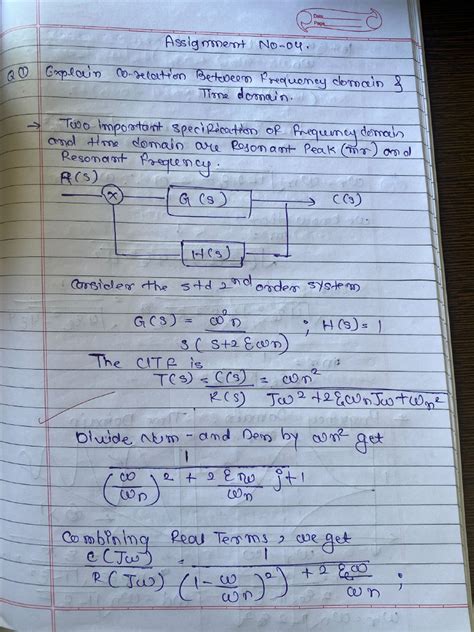 Date
Page
Assignment No-04.
Q ① Explain co-relation Between Frequency domain &
Time domain.
→ Two important specification of frequency domain
and time domain are Resonant Peak (mr) and
Resonant Frequency.
R(S) X G(S) → C(S)
H(S)
Consider the std 2nd order system
G(S) = ω²n / S(S+2ξωn) ; H(S)=1
The ClTF is
T(S) = C(S)/R(S) = ωn² / Jω²+2ξωnJω+ωn²
Divide Num - and Den by ωn² get
1 / (ω/ωn)² + 2ξω/ωn j+1
Combining Real Terms, we get
C(Jω)/R(Jω) = 1 / (1-ω/ωn)²) + 2ξω/ωn ;